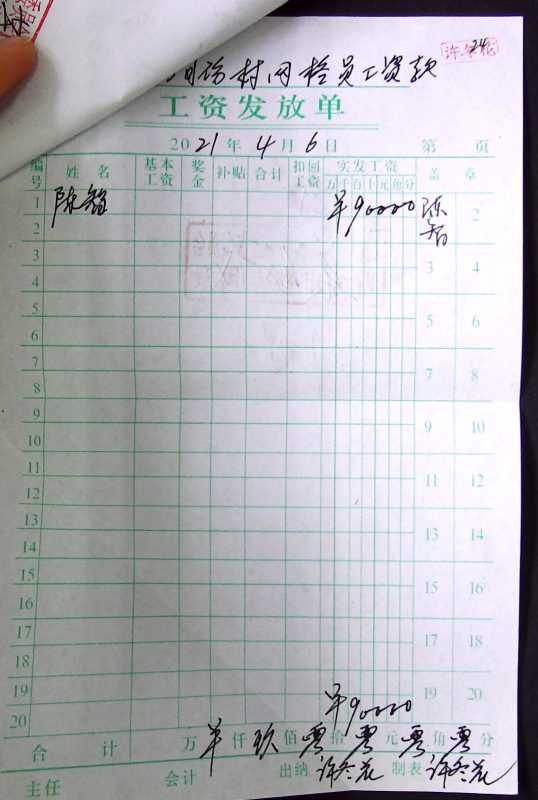 月份村网格员工资款
工资发放单
2021年4月6日 第 页
编号 姓名 基本工资 奖金 补贴 合计 扣回工资 实发工资 盖章
万千百十元角分
1 陈智 ¥90000 陈智
2 2
3 3 4
4
5 5 6
6
7 7 8
8
9 9 10
10
11 11 12
12
13 13 14
14
15 15 16
16
17 17 18
18
19 19 20
20 ¥90000
合计 万 ¥ 仟 玖 佰 零 拾 零 元 零 角 零 分
主任 会计 出纳 许冬花 制表 许冬花